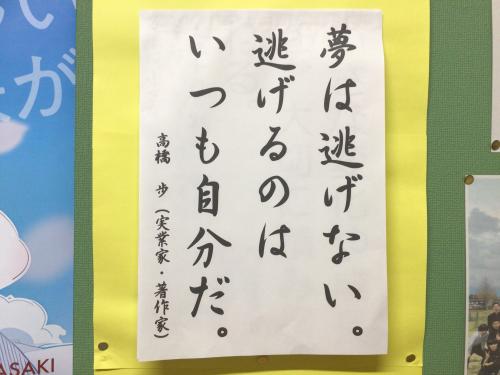 夢は逃げない。
逃げるのは
いつも自分だ。
高橋 歩（実業家・著作家）
い
が
ASAKI